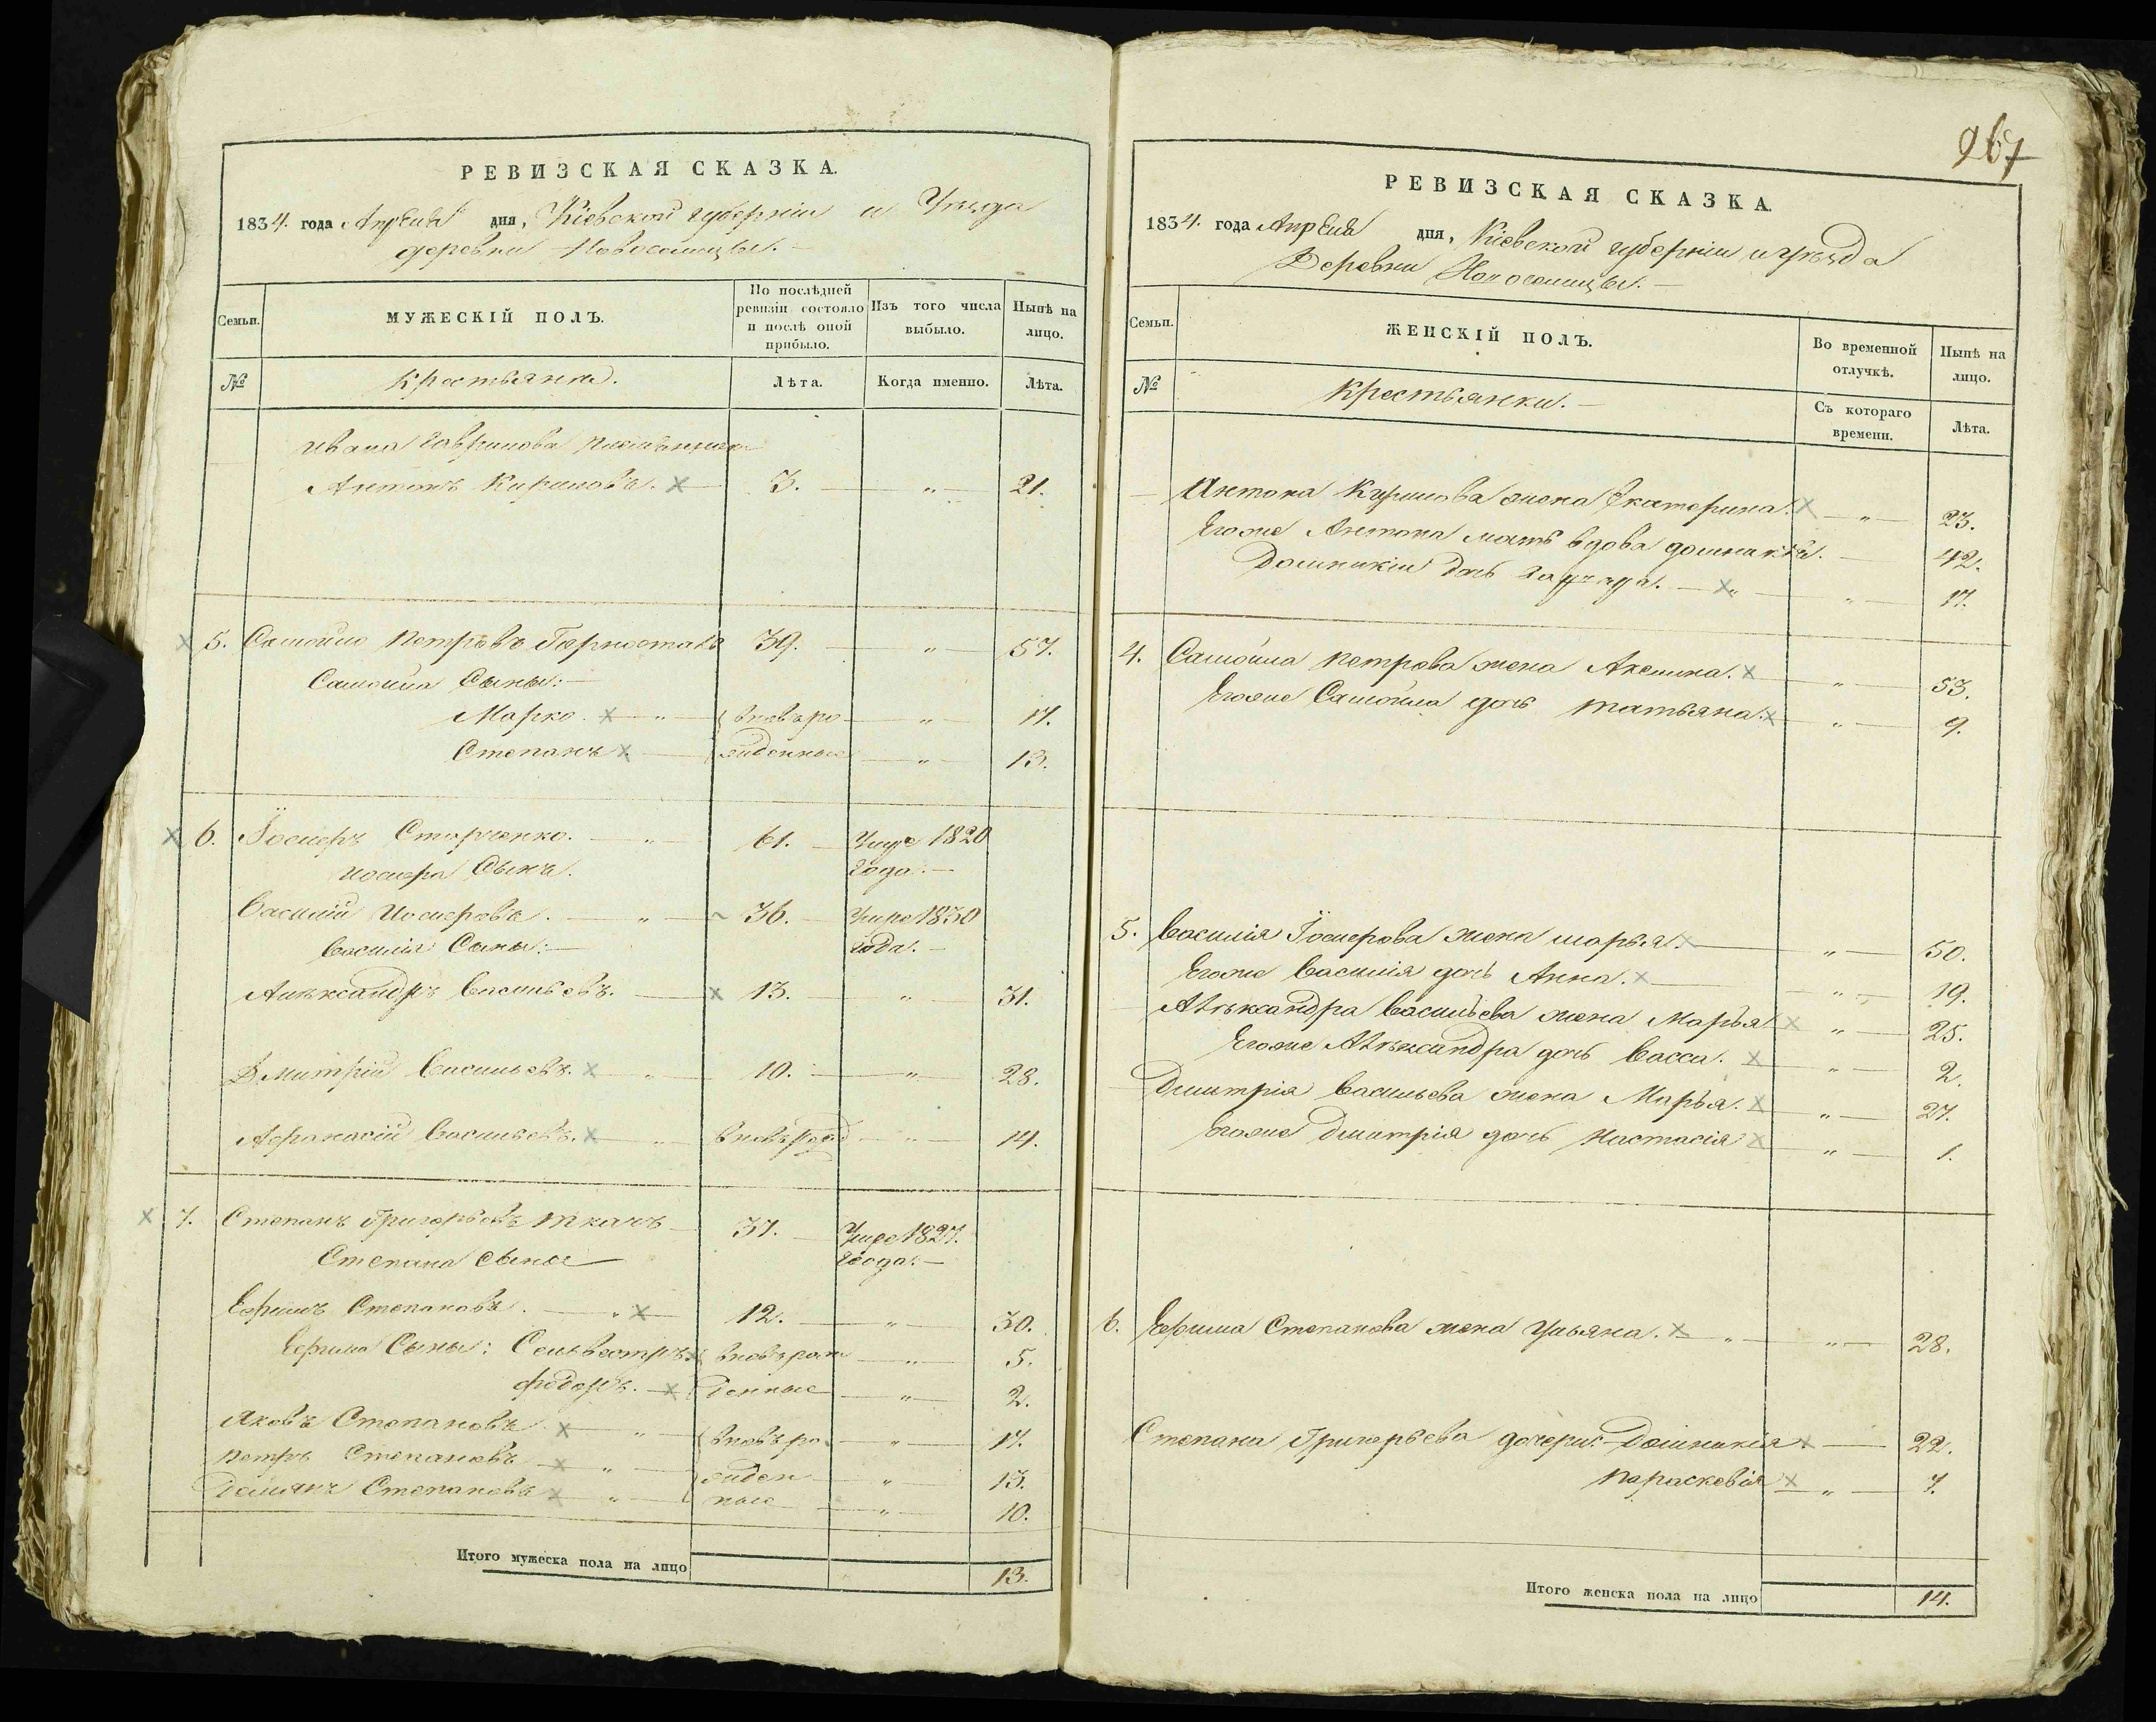 РЕВИЗСКАЯ СКАЗКА.
1834. года Апреля дня, Кіевской губерніи и Уезда
деревни Новоселицы.
Семьи.
МУЖЕСКІЙ ПОЛЪ.
По послѣдней
ревизіи состояло
и послѣ оной
прибыло.
Изъ того числа
выбыло.
Нынѣ на
лицо.
№
Крестьяне.
Лѣта.
Когда именно.
Лѣта.
Ивана Гаврилова племянник
Антонъ Кириловъ. × 3. " 21.
× 5. Самойло Петровъ Горностай 39. " 57.
Самойла Сыны:
Марко. × " вновь ро " 17.
Степанъ × жденные " 13.
× 6. Іосиеръ Старченко. " 61. Умре 1820
Года.
Иосиера Сынъ.
Василій Иосиеровъ. " 36. Умре 1830
года.
Василія Сыны:
Алѣксандръ Васильевъ. × 13. " 31.
Дмитрій Васильевъ. × " 10. " 28.
Афанасій Васильевъ. × " вновь рожд " 14.
× 7. Степанъ Григорьевъ Ткачъ 37. Умре 1827.
Года.
Степана сыны
Ефимъ Степановъ. " × 12. " 30.
Ефима Сыны: Сельвестръ × вновь рож " 5.
Федоръ. × денные " 2.
Яковъ Степановъ × " вновь ро " 17.
Петръ Степановъ × " жден " 13.
Демянъ Степановъ × " ные " 10.
Итого мужеска пола на лицо 13.
267
РЕВИЗСКАЯ СКАЗКА.
1834. года Апреля дня, Кіевской губерніи и уѣзда
Деревни Новоселицы.
Семьи.
ЖЕНСКІЙ ПОЛЪ.
Во временной
отлучкѣ.
Нынѣ на
лицо.
№
Крестьянки.
Съ котораго
времени.
Лѣта.
Антона Кирилова жена Екатерина. × " 23.
Егоже Антона мать вдова домникія. 42.
Домникіи дочь × " 17.
4. Самойла Петрова жена Акелина. × " 53.
Егоже Самойла дочь татьяна. × " 9.
5. Василія Іосиерова жена марья. × " 50.
Егоже Василія дочь Анна. × " 19.
Алѣксандра Васильева жена Марья × " 25.
Егоже Алѣксандра дочь Васса. × " 2.
Дмитрія Васильева жена Марья. × " 27.
Егоже Дмитрія дочь Настасія × " 1.
6. Ефима Степанова жена Ульяна. × " " 28.
Степана Григорьева дочери: Домникія × 22.
Параскевія × " 7.
Итого женска пола на лицо 14.